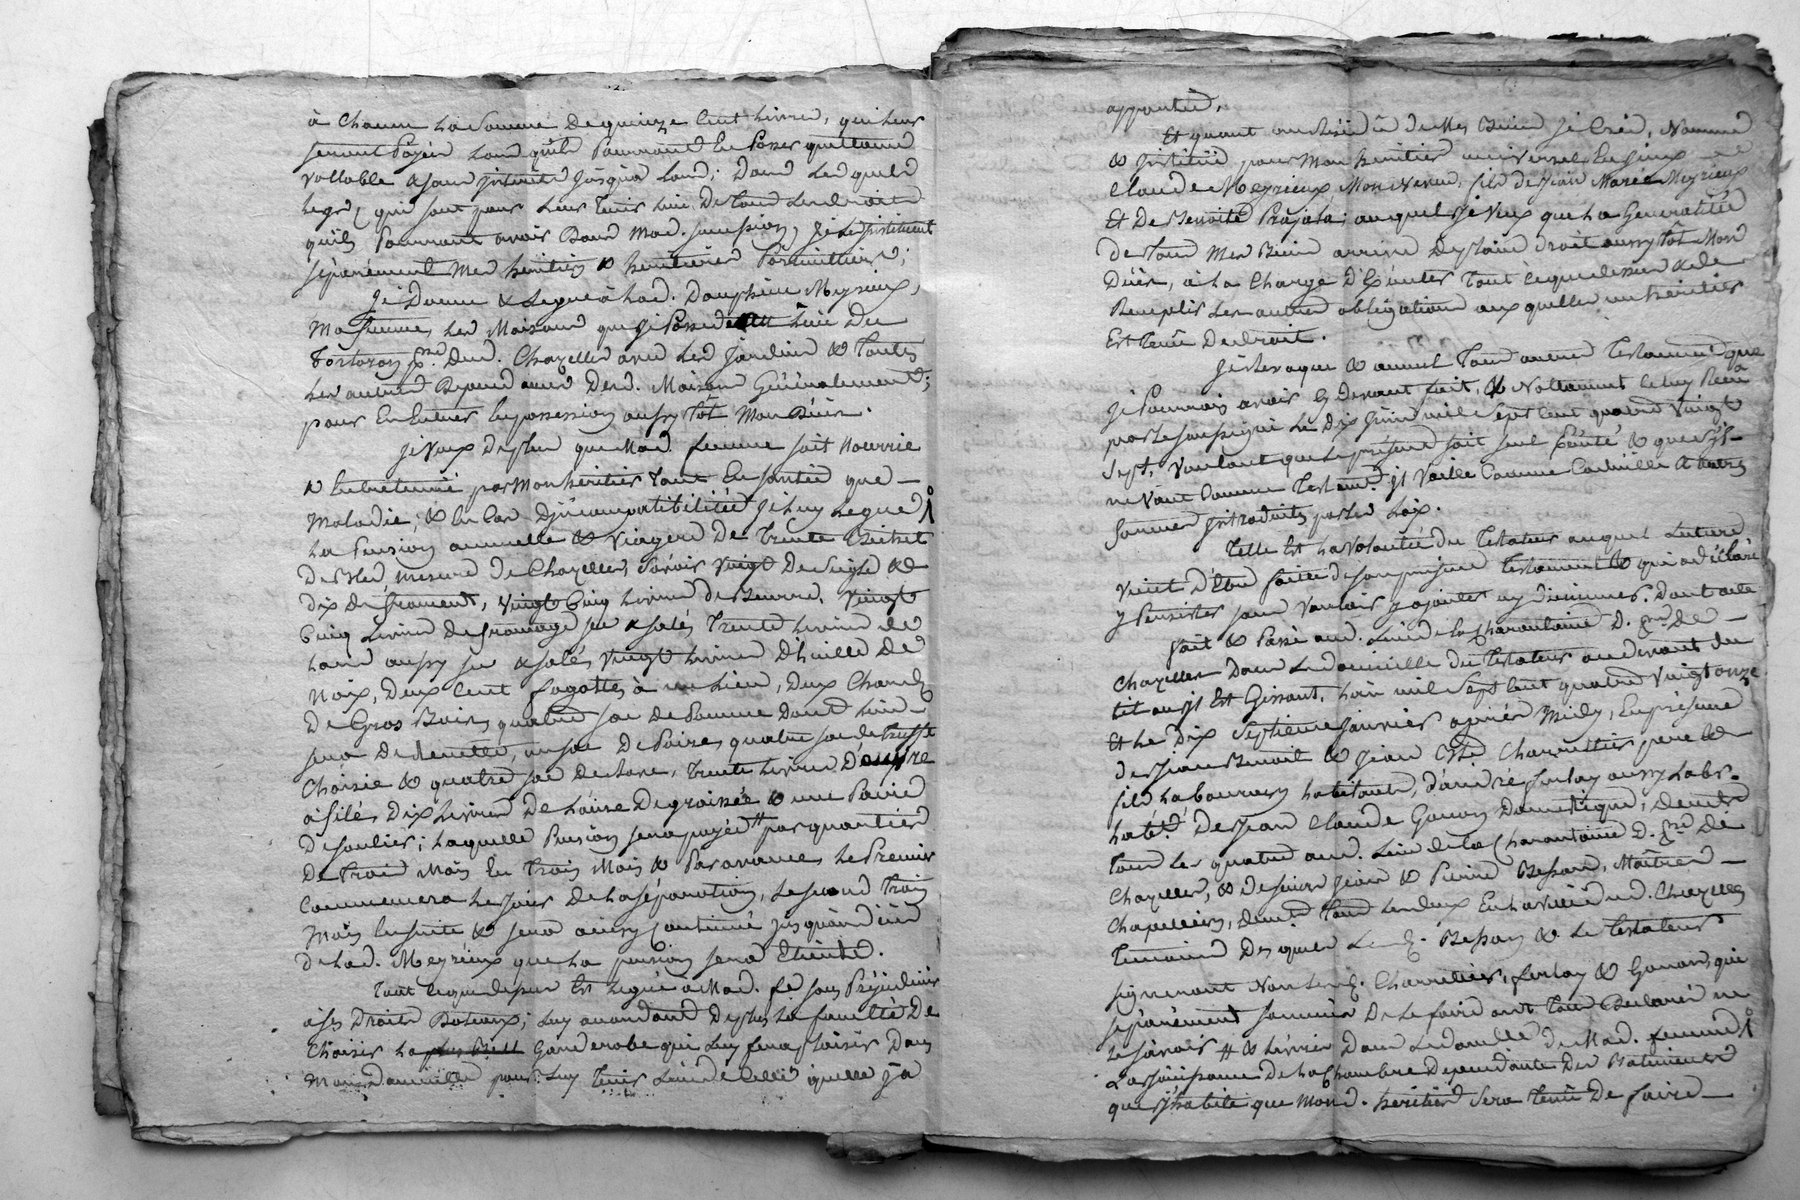 à Chacun la Somme de quinze Cent livres, qui leur
seront Payés lorsquils Pourront En Passer quittance
vallable & sans jnterêts jusqu'à lors; Dans lesquels
legs qui sont pour leur tenir lieu de tous les droits
quils Pourront avoir Dans Mad. succession, je les jnstituent
séparément Mes héritiers & héritieres Particulliers;
je Donne & Legue à Lad. Dauphine Meyrieux,
Ma femme, les Maisons que je Possede lieu du
p.sse Dud. Chazelles avec les jardins & toutes
les autres Dependances Desd. Maisons Généralement;
pour En Entrer En possession aussy tôt Mon Décés.
je Veux De plus que Mad. femme soit Nourrie
& Entretenüe par Mon héritier tant En santée que
Maladie; & En Cas Djncompatibilitée je luy Legue
La Pension annuelle & viagere De trente Bichets
De Bled, mesure de Chazelles, Sçavoir vingt De Seigle &
dix de froment, vingt Cinq livres de Beurre, vingt
Cinq Livres de fromage sec & salés, trente livres de
Lard aussy sec & salés, vingt livres D'huille De
Noix, Deux Cent fagottes à un lien, Deux Chards
De Gros Bois, quatre sac De Pomme dont un
sera De Renette, un sac De Poires, quatre sac de truffe
Choisie & quatre sac De Rave, trente livres D'œuvre
à filés, Dix livres De Laine Degraissée & une Paire
De soulier; laquelle Pension sera payée # par quartier
De trois Mois En trois Mois & Par avance, le Premier
Commencera le jour de la séparation, le second trois
Mois En suite & sera ainsy Continué jusqu'au décés
de Lad. Meyrieux que La pension sera Eteinte.
Tout ce que dessus Est legué à Mad. fe sans Préjudicier
à ses Droits Dotaux; luy accordant De plus la faculté De
Choisir la Garderobe qui luy fera plaisir Dans
Mon Domicille pour luy tenir Lieu de Celle quelle j'a
apportée.
Et quant au Résidû de Mes Biens je Crée, Nomme
& jnstitüe pour Mon héritier universel En sieur
Claude Meyrieux Mon Neveu, fils de Jean Marie Meyrieux
Et De Benoite Prajala; auquel je veux que La Généralitée
de tous Mes Biens arrive De plain droit aussy tôt Mon
Décés, à La Charge D'Exécuter tout ce que dessus & de
Remplir les autres obligations aux quelles un héritier
Est tenû De droit.
je Revoque & annul tous autres Testaments que
je Pourrois avoir cy devant fait, & Nottamment Celuy Reçu
par le soussigné Le dix juin mil Sept Cent quatre vingt
Sept, Voulant que le présent soit seul Exécuté & que s'jl
ne Vaut Comme Testamt. jl Vaille Comme Codicille & autres
formes jntroduits par les Loix.
Telle Est La volontée du Testateur auquel Lecture
Vient D'Etre faitte de son présent Testament & qui a déclaré
y Persister sans vouloir y ajouter ny diminuer. Dont acte
fait & Passé aud. Lieu de la Charantaine D. p.sse De
Chazelles Dans Le domicille du Testateur au devant du
lit ou jl Est Gissant, Lan mil Sept Cent quatre vingt onze
Et Le Dix Septieme janvier après Midy, En présence
de Jean Benoit & Jean Bte. Charretier pere &
fils Laboureurs habitants, d'andré ferlay aussy Labr.
habt. De Jean Claude Gonon Domestique; Demts.
tous les quatre aud. Lieu de la Charantaine D. p.sse De
Chazelles, & de sieurs Jean & Pierre Besson, Maîtres
Chapelliers, demts. tous les deux En La ville dud. Chazelles
Temoins Des quels Lesd. Besson & Le Testateur
signeront Non Lesd. Charretier, ferlay & Gonon, qui
séparément sommés De Le faire ont tous Déclaré ne
le sçavoir # & livrés Dans Le domicille de Mad. femme
La jouissance De La Chambre Dépendante Des Batiments
que j'habite que Mond. héritier sera tenû De faire